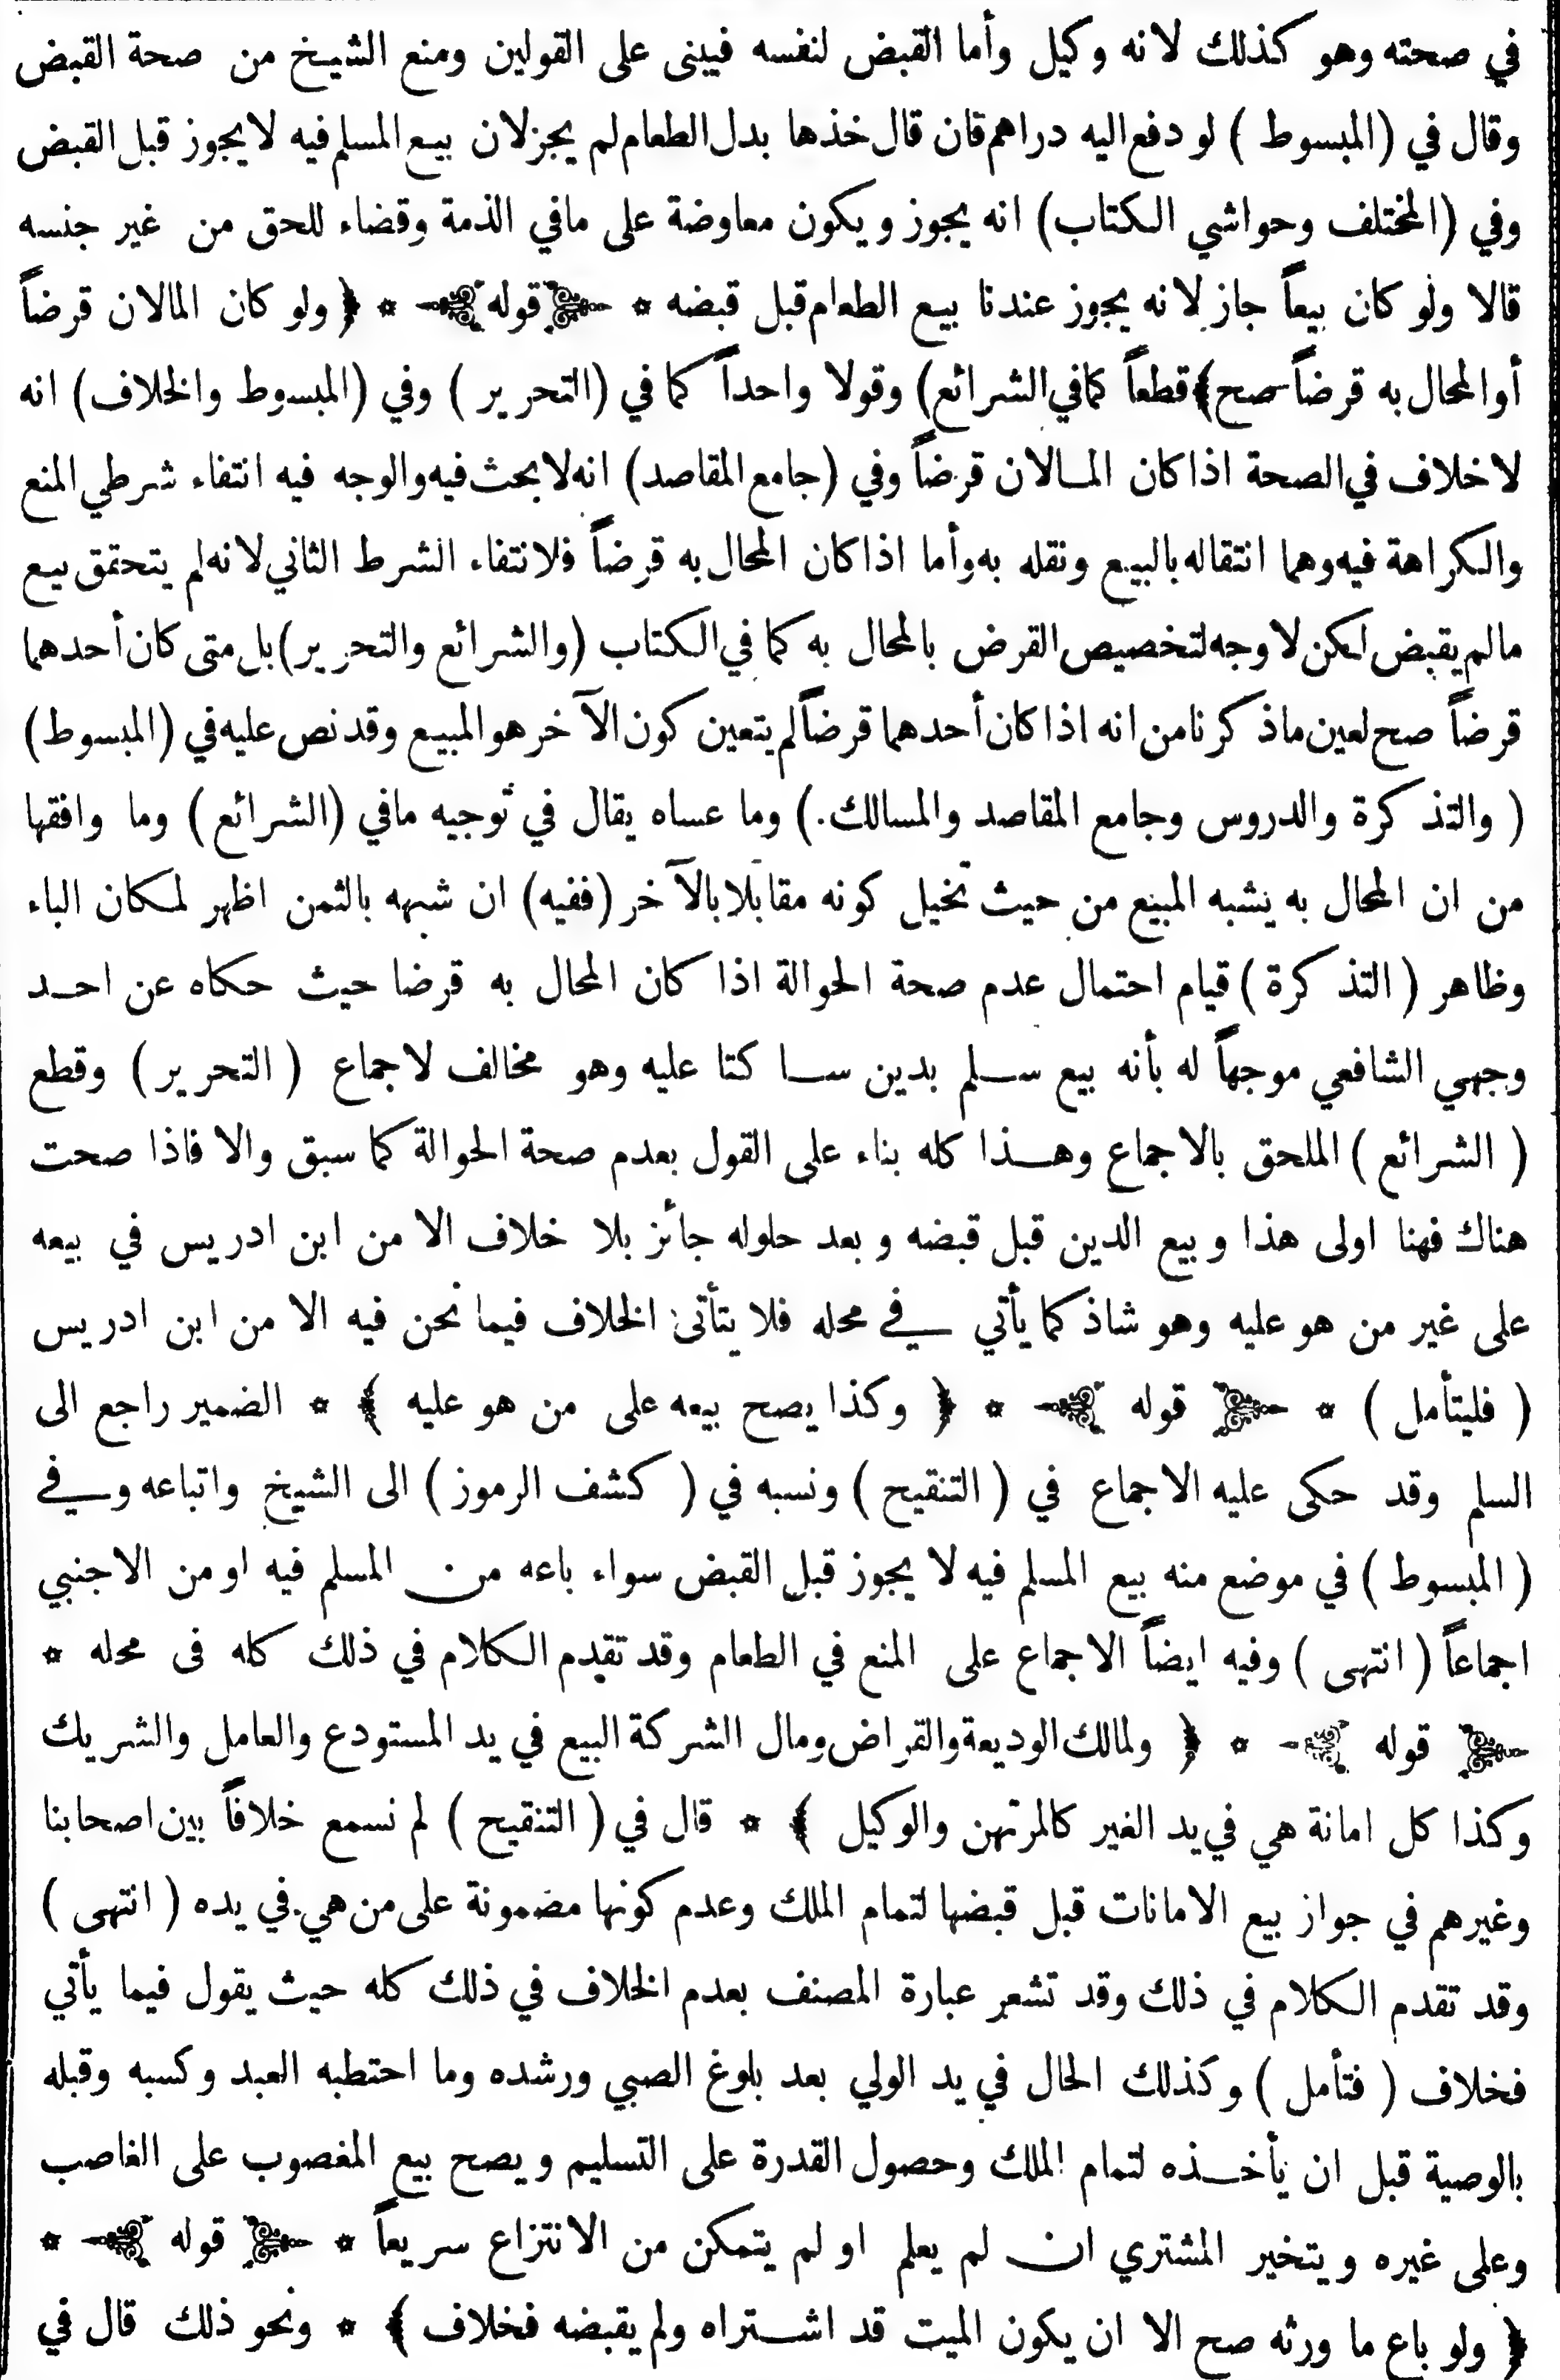 في صحته وهو كذلك لانه وكيل وأما القبض لنفسه فيبنى على القولين ومنع الشيخ من صحة القبض
وقال في (المبسوط) لو دفع اليه دراهم فان قال خذها بدل الطعام لم يجز لان بيع المسلم فيه لا يجوز قبل القبض
وفي (المختلف وحواشي الكتاب) انه يجوز ويكون معاوضة على مافي الذمة وقضاء للحق من غير جنسه
قالا ولو كان بيعاً جاز لانه يجوز عندنا بيع الطعام قبل قبضه * قوله * ﴿ ولو كان المالان قرضاً
أو المحال به قرضاً صح ﴾ قطعاً كما في الشرائع) وقولا واحداً كما في (التحرير) وفي (المبسوط والخلاف) انه
لا خلاف في الصحة اذا كان المالان قرضاً وفي (جامع المقاصد) انه لا بحث فيه والوجه فيه انتفاء شرطي المنع
والكراهة فيه وهما انتقاله بالبيع ونقله به وأما اذا كان المحال به قرضاً فلانتفاء الشرط الثاني لانه لم يتحقق بيع
مالم يقبض لكن لا وجه لتخصيص القرض بالمحال به كما في الكتاب (والشرائع والتحرير) بل متى كان أحدهما
قرضاً صح لعين ماذكرنا من انه اذا كان أحدهما قرضاً لم يتعين كون الآخر هو المبيع وقد نص عليه في (المبسوط)
(والتذكرة والدروس وجامع المقاصد والمسالك.) وما عساه يقال في توجيه مافي (الشرائع) وما وافقها
من ان المحال به يشبه المبيع من حيث تخيل كونه مقابلا بالآخر (ففيه) ان شبهه بالثمن اظهر لمكان الباء
وظاهر (التذكرة) قيام احتمال عدم صحة الحوالة اذا كان المحال به قرضا حيث حكاه عن احد
وجهي الشافعي موجهاً له بأنه بيع سلم بدين ساكتا عليه وهو مخالف لاجماع (التحرير) وقطع
(الشرائع) الملحق بالاجماع وهذا كله بناء على القول بعدم صحة الحوالة كما سبق والا فاذا صحت
هناك فهنا اولى هذا وبيع الدين قبل قبضه وبعد حلوله جائز بلا خلاف الا من ابن ادريس في بيعه
على غير من هو عليه وهو شاذ كما يأتي في محله فلا يتأتى الخلاف فيما نحن فيه الا من ابن ادريس
(فليتأمل) * قوله * ﴿ وكذا يصح بيعه على من هو عليه ﴾ * الضمير راجع الى
السلم وقد حكى عليه الاجماع في (التنقيح) ونسبه في (كشف الرموز) الى الشيخ واتباعه وفي
(المبسوط) في موضع منه بيع المسلم فيه لا يجوز قبل القبض سواء باعه من المسلم فيه او من الاجنبي
اجماعاً (انتهى) وفيه ايضاً الاجماع على المنع في الطعام وقد تقدم الكلام في ذلك كله فى محله *
قوله * ﴿ ولمالك الوديعة والقراض ومال الشركة البيع في يد المستودع والعامل والشريك
وكذا كل امانة هي في يد الغير كالمرتهن والوكيل ﴾ * قال في (التنقيح) لم نسمع خلافاً بين اصحابنا
وغيرهم في جواز بيع الامانات قبل قبضها لتمام الملك وعدم كونها مضمونة على من هي في يده (انتهى)
وقد تقدم الكلام في ذلك وقد تشعر عبارة المصنف بعدم الخلاف في ذلك كله حيث يقول فيما يأتي
فخلاف (فتأمل) وكذلك الحال في يد الولي بعد بلوغ الصبي ورشده وما احتطبه العبد وكسبه وقبله
بالوصية قبل ان يأخذه لتمام الملك وحصول القدرة على التسليم ويصح بيع المغصوب على الغاصب
وعلى غيره ويتخير المشتري ان لم يعلم او لم يتمكن من الانتزاع سريعاً * قوله *
﴿ ولو باع ما ورثه صح الا ان يكون الميت قد اشتراه ولم يقبضه فخلاف ﴾ * ونحو ذلك قال في